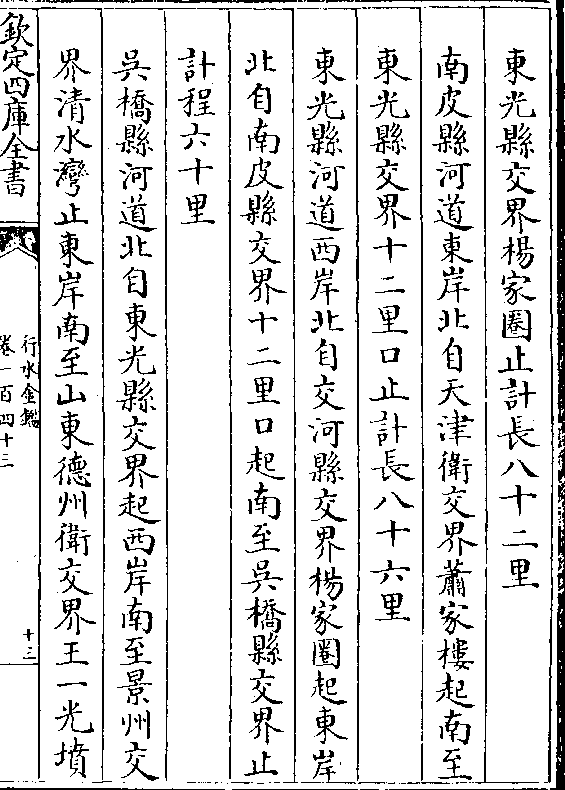 東光縣交界楊家圈止計長八十二里
南皮縣河道東岸北自天津衛交界蕭家樓起南至
東光縣交界十二里口止計長八十六里
東光縣河道西岸北自交河縣交界楊家圈起東岸
北自南皮縣交界十二里口起南至吳橋縣交界止
計程六十里
吳橋縣河道北自東光縣交界起西岸南至景州交
界清水灣止東岸南至山東德州衛交界王一光墳
欽定四庫全書
行水金鑑
卷一百四十三
十三